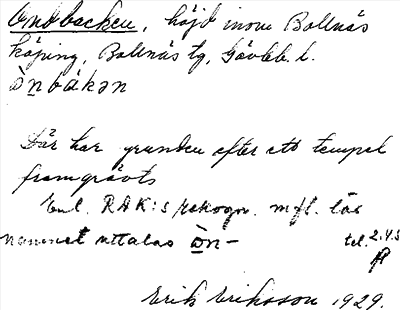 Ondbacken, höjd inom Bollnäs
köping, Bollnäs tg, Gävleb. l.
ὸnbákən
Där har grunden efter ett tempel
framgrävts
Enl. RAK:s rekogn. mfl. lär
namnet uttalas òn-
tel. 2.4.5
Erik Eriksson 1929.